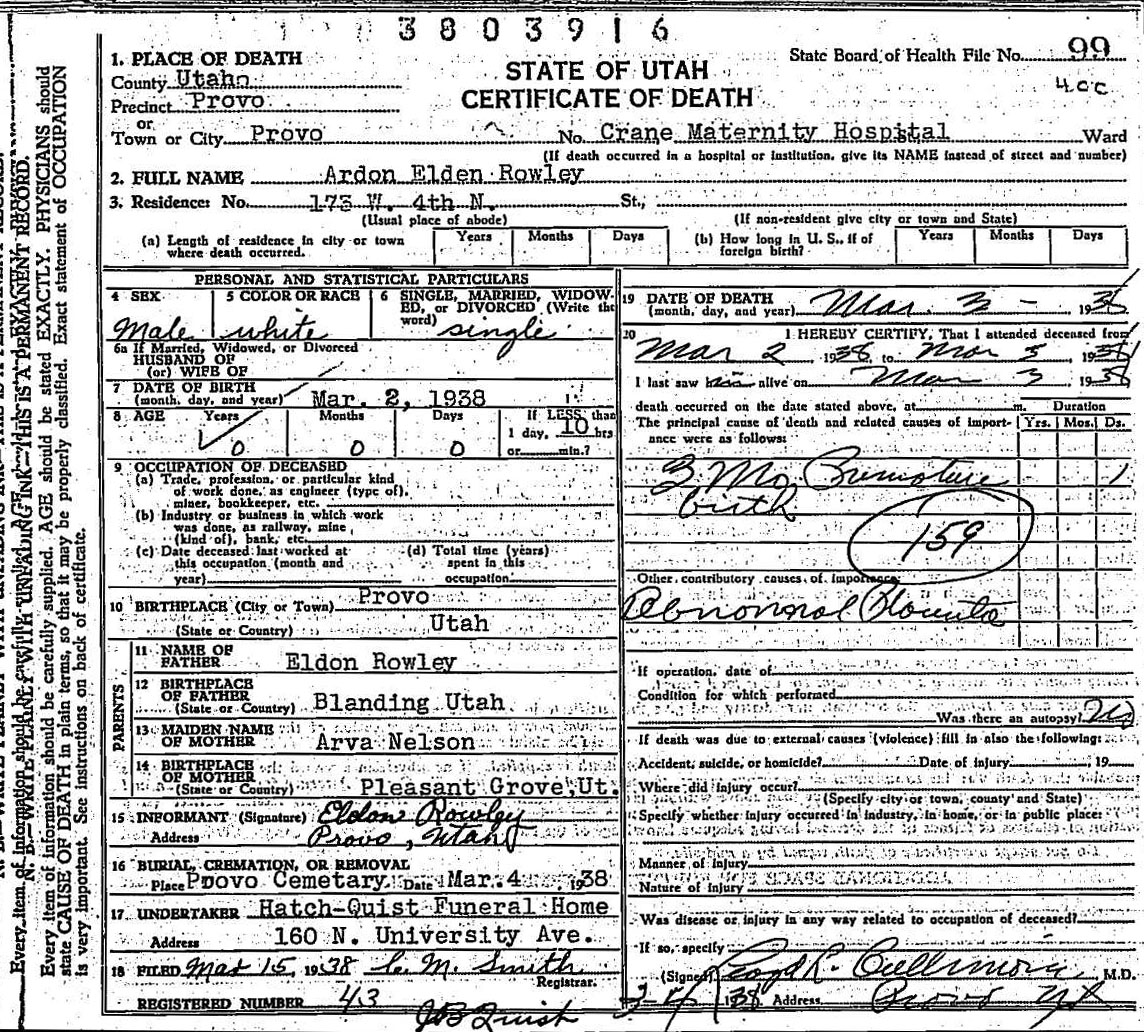 3803916
State Board of Health File No. 99
400
1. PLACE OF DEATH
County Utah
STATE OF UTAH
Precinct Provo
CERTIFICATE OF DEATH
or
Town or City Provo No. Crane Maternity Hospital Ward
(If death occurred in a hospital or institution, give its NAME instead of street and number)
2. FULL NAME Ardon Elden Rowley
3. Residence: No. 173 W. 4th N. St.,
(Usual place of abode) (If non-resident give city or town and State)
(a) Length of residence in city or town where death occurred. Years Months Days (b) How long in U. S., if of foreign birth? Years Months Days
PERSONAL AND STATISTICAL PARTICULARS
4 SEX 5 COLOR OR RACE 6 SINGLE, MARRIED, WIDOW-
ED, or DIVORCED (Write the
word)
Male white single
6a If Married, Widowed, or Divorced
HUSBAND OF
(or) WIFE OF
7 DATE OF BIRTH
(month, day, and year) Mar. 2, 1938
8 AGE Years Months Days If LESS than
1 day, 10 hrs
0 0 0 or min.?
9 OCCUPATION OF DECEASED
(a) Trade, profession, or particular kind
of work done, as engineer (type of),
miner, bookkeeper, etc.
(b) Industry or business in which work
was done, as railway, mine
(kind of), bank, etc.
(c) Date deceased last worked at
this occupation (month and
year)
(d) Total time (years)
spent in this
occupation
10 BIRTHPLACE (City or Town) Provo
(State or Country) Utah
PARENTS
11 NAME OF
FATHER Eldon Rowley
12 BIRTHPLACE
OF FATHER
(State or Country) Blanding Utah
13 MAIDEN NAME
OF MOTHER Arva Nelson
14 BIRTHPLACE
OF MOTHER
(State or Country) Pleasant Grove, Ut.
15 INFORMANT (Signature) Eldon Rowley
Address Provo, Utah
16 BURIAL, CREMATION, OR REMOVAL
Place Provo Cemetary Date Mar. 4 1938
17 UNDERTAKER Hatch-Quist Funeral Home
Address 160 N. University Ave.
18 FILED Mar 15, 1938 C. M. Smith
Registrar.
REGISTERED NUMBER 43
19 DATE OF DEATH
(month, day, and year) Mar. 3 - 1938
20 I HEREBY CERTIFY, That I attended deceased from
Mar 2 1938, to Mar 3, 1938
I last saw him alive on Mar 3 1938
death occurred on the date stated above, at m. Duration
The principal cause of death and related causes of import-
ance were as follows: Yrs. Mos. Ds.
3 Mo. Premature 1
birth
159
Other contributory causes of importance
Abnormal
If operation, date of
Condition for which performed
Was there an autopsy? No
If death was due to external causes (violence) fill in also the following:
Accident, suicide, or homicide? Date of injury , 19
Where did injury occur?
(Specify city or town, county and State)
Specify whether injury occurred in industry, in home, or in public place:
Manner of injury
Nature of injury
Was disease or injury in any way related to occupation of deceased?
If so, specify
(Signed) Cullimore M.D.
1938 Address Provo
Every item of information should be carefully supplied. AGE should be stated EXACTLY. PHYSICIANS should
state CAUSE OF DEATH in plain terms, so that it may be properly classified. Exact statement of OCCUPATION
is very important. See instructions on back of certificate.
N. B.—WRITE PLAINLY WITH UNFADING INK—THIS IS A PERMANENT RECORD.